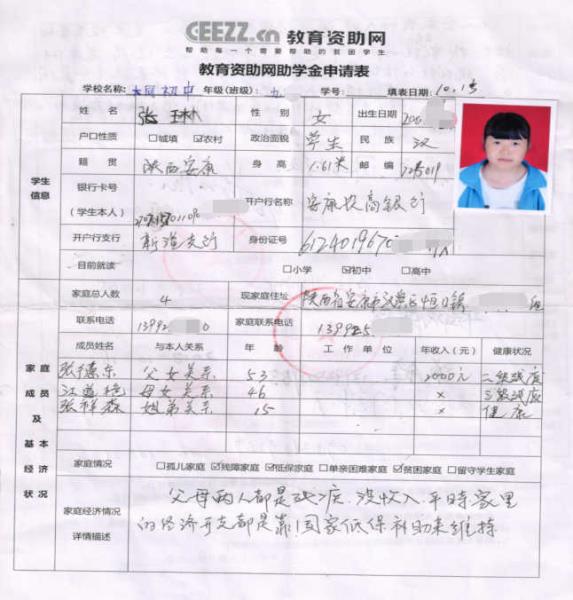 CEEZZ.cn 教育资助网
帮助每一个需要帮助的贫困学生
教育资助网助学金申请表
学校名称: 初中 年级(班级): 九 学号: 填表日期: 10.15
姓名 张 性别 女 出生日期 200
户口性质 □城镇 ☑农村 政治面貌 学生 民族 汉
学生信息
籍贯 陕西安康 身高 1.61米 邮编 725019
银行卡号
(学生本人)
开户行名称 安康农商银行
开户行支行 支行 身份证号
目前就读 □小学 ☑初中 □高中
家庭总人数 4 现家庭住址 陕西省安康市汉滨区恒口镇
联系电话 13992 0 家庭联系电话 139925
成员姓名 与本人关系 年龄 工作单位 年收入(元) 健康状况
张德东 父女关系 53 2000元 二级残疾
母女关系 46 × 残疾
张祥森 姐弟关系 15 × 健康
家庭成员及基本经济状况
家庭情况 □孤儿家庭 ☑残障家庭 ☑低保家庭 □单亲困难家庭 ☑贫困家庭 □留守学生家庭
家庭经济情况
详情描述
父母两人都是残疾,没收入,平时家里
的经济开支都是靠国家低保补助来维持